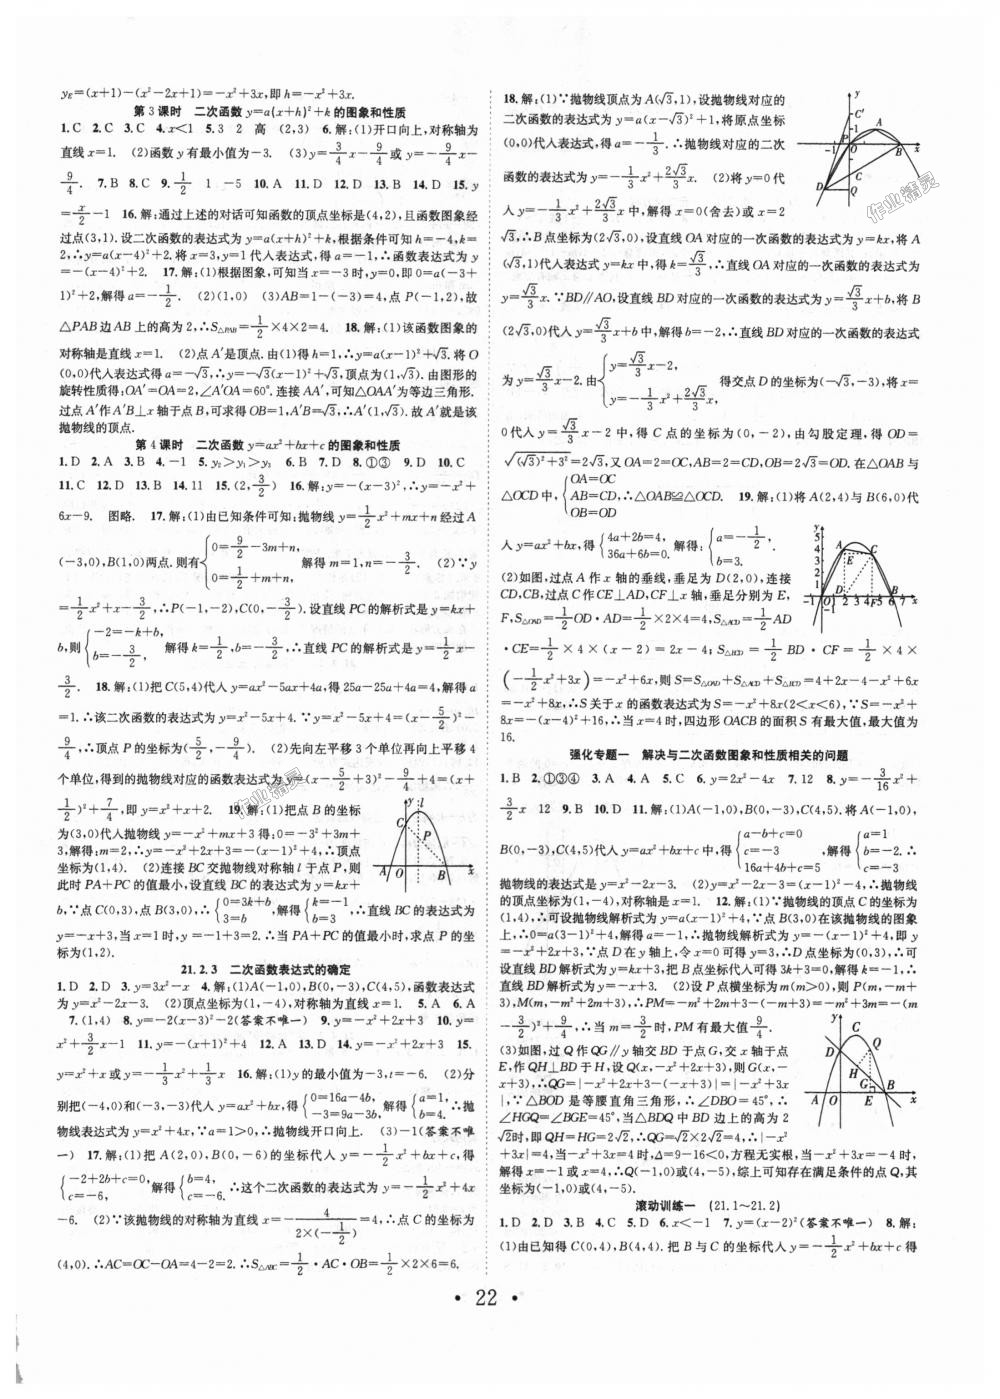 y_E=(x+1)-(x²-2x+1)=-x²+3x,即h=-x²+3x.
第3课时　二次函数y=a(x+h)²+k的图象和性质
1.C　2.C　3.C　4.x<1　5.3　2　高　(2,3)　6.解:(1)开口向上,对称轴为
直线x=1.　(2)函数y有最小值为-3.　(3)y=3/4x-9/4或y=-3/4x-
9/4.　7.B　8.C　9.1/2　1　-5　10.A　11.D　12.D　13.B　14.D　15.y
=x/2-1　16.解:通过上述的对话可知函数的顶点坐标是(4,2),且函数图象经
过点(3,1).设二次函数的表达式为y=a(x+h)²+k,根据条件可知h=-4,k=
2,∴y=a(x-4)²+2.将x=3,y=1代入表达式,得a=-1,∴函数表达式为y
=-(x-4)²+2.　17.解:(1)根据图象,可知当x=-3时,y=0,即0=a(-3+
1)²+2,解得a=-1/2.　(2)(1,0)　(3)AB=1-(-3)=4,点P(-1,2),故
△PAB边AB上的高为2,∴S△PAB=1/2×4×2=4.　18.解:(1)该函数图象的
对称轴是直线x=1.　(2)点A′是顶点.由(1)得h=1,∴y=a(x-1)²+√3.将O
(0,0)代入表达式得a=-√3,∴y=-√3(x-1)²+√3,顶点为(1,√3).由图形的
旋转性质得:OA′=OA=2,∠A′OA=60°.连接AA′,可知△OAA′为等边三角形.
过点A′作A′B⊥x轴于点B,可求得OB=1,A′B=√3,∴A′(1,√3).故A′就是该
抛物线的顶点.
第4课时　二次函数y=ax²+bx+c的图象和性质
1.D　2.A　3.B　4.-1　5.y₂>y₁>y₃　6.B　7.D　8.①③　9.D　10.C
11.C　12.D　13.B　14.11　15.(2,3/2)　16.解:y=-(x-3)²,∴y=-x²+
6x-9.　图略.　17.解:(1)由已知条件可知:抛物线y=1/2x²+mx+n经过A
(-3,0),B(1,0)两点.则有{0=9/2-3m+n,　0=1/2+m+n,　解得m=1,n=-3/2.　(2)∵y
=1/2x²+x-3/2,∴P(-1,-2),C(0,-3/2).设直线PC的解析式是y=kx+
b,则{-2=-k+b,　b=-3/2,　解得k=1/2,b=-3/2,∴直线PC的解析式是y=1/2x-
3/2.　18.解:(1)把C(5,4)代入y=ax²-5ax+4a,得25a-25a+4a=4,解得a
=1.∴该二次函数的表达式为y=x²-5x+4.∵y=x²-5x+4=(x-5/2)²-
9/4,∴顶点P的坐标为(5/2,-9/4).　(2)先向左平移3个单位再向上平移4
个单位,得到的抛物线对应的函数表达式为y=(x-5/2+3)²-9/4+4=(x+
1/2)²+7/4,即y=x²+x+2.　19.解:(1)把点B的坐标
为(3,0)代入抛物线y=-x²+mx+3得:0=-3²+3m+
3,解得:m=2,∴y=-x²+2x+3=-(x-1)²+4,∴顶点
坐标为(1,4).　(2)连接BC交抛物线对称轴l于点P,则
此时PA+PC的值最小,设直线BC的表达式为y=kx+
b,∵点C(0,3),点B(3,0),∴{0=3k+b　3=b,解得{k=-1　b=3,∴直线BC的表达式为
y=-x+3,当x=1时,y=-1+3=2.∴当PA+PC的值最小时,求点P的坐
标为(1,2).
21.2.3　二次函数表达式的确定
1.D　2.D　3.y=3x²-x　4.解:(1)A(-1,0),B(0,-3),C(4,5),函数表达式
为y=x²-2x-3.　(2)顶点坐标为(1,-4),对称轴为直线x=1.　5.A　6.A
7.(1,4)　8.y=-2(x-3)²-2(答案不唯一)　9.y=-x²+2x+3　10.y=
x²+3/2x-1　11.y=-(x+1)²+4　12.A　13.D　14.y=-x²+2x+3　15.
y=x²+x或y=-1/3x²+1/3x　16.解:(1)y的最小值为-3,t=-6.　(2)分
别把(-4,0)和(-3,-3)代入y=ax²+bx,得{0=16a-4b,　-3=9a-3b,解得{a=1,　b=4.∴抛
物线表达式为y=x²+4x,∵a=1>0,∴抛物线开口向上.　(3)-1(答案不唯
一)　17.解:(1)把A(2,0),B(0,-6)的坐标代入y=-1/2x²+bx+c,得
{-2+2b+c=0,　c=-6,　解得{b=4,　c=-6.∴这个二次函数的表达式为y=-1/2x²+4x
-6.　(2)∵该抛物线的对称轴为直线x=-4/(2×(-1/2))=4,∴点C的坐标为
(4,0).∴AC=OC-OA=4-2=2.∴S△ABC=1/2·AC·OB=1/2×2×6=6.
18.解:(1)∵抛物线顶点为A(√3,1),设抛物线对应的
二次函数的表达式为y=a(x-√3)²+1,将原点坐标
(0,0)代入表达式,得a=-1/3.∴抛物线对应的二次
函数的表达式为y=-1/3x²+2√3/3x.　(2)将y=0代
入y=-1/3x²+2√3/3x中,解得x=0(舍去)或x=2
√3,∴B点坐标为(2√3,0),设直线OA对应的一次函数的表达式为y=kx,将A
(√3,1)代入表达式y=kx中,得k=√3/3,∴直线OA对应的一次函数的表达式为
y=√3/3x.∵BD∥AO,设直线BD对应的一次函数的表达式为y=√3/3x+b,将B
(2√3,0)代入y=√3/3x+b中,解得b=-2,∴直线BD对应的一次函数的表达式
为y=√3/3x-2.由{y=√3/3x-2,　y=-1/3x²+2√3/3x,得交点D的坐标为(-√3,-3),将x=
0代入y=√3/3x-2中,得C点的坐标为(0,-2),由勾股定理,得OD=
√((√3)²+3²)=2√3,又OA=2=OC,AB=2=CD,OB=2√3=OD.在△OAB与
△OCD中,{OA=OC　AB=CD,　OB=OD∴△OAB≌△OCD.　19.解:(1)将A(2,4)与B(6,0)代
入y=ax²+bx,得{4a+2b=4,　36a+6b=0.解得:{a=-1/2,　b=3.
(2)如图,过点A作x轴的垂线,垂足为D(2,0),连接
CD,CB,过点C作CE⊥AD,CF⊥x轴,垂足分别为E,
F,S△OAD=1/2OD·AD=1/2×2×4=4,S△ACD=1/2AD
·CE=1/2×4×(x-2)=2x-4;S△BCD=1/2BD·CF=1/2×4×
(-1/2x²+3x)=-x²+6x,则S=S△OAD+S△ACD+S△BCD=4+2x-4-x²+6x
=-x²+8x,∴S关于x的函数表达式为S=-x²+8x(2<x<6),∵S=-x²+
8x=-(x-4)²+16,∴当x=4时,四边形OACB的面积S有最大值,最大值为
16.
强化专题一　解决与二次函数图象和性质相关的问题
1.B　2.①③④　3.A　4.A　5.C　6.y=2x²-4x　7.12　8.y=-3/16x²+
3/2x　12　9.B　10.D　11.解:(1)A(-1,0),B(0,-3),C(4,5).将A(-1,0),
B(0,-3),C(4,5)代入y=ax²+bx+c中,得{a-b+c=0　c=-3　16a+4b+c=5,解得{a=1　b=-2.　c=-3∴
抛物线的表达式是y=x²-2x-3.　(2)y=x²-2x-3=(x-1)²-4,∴抛物线
的顶点坐标为(1,-4),对称轴是x=1.　12.解:(1)∵抛物线的顶点C的坐标为
(1,4),∴可设抛物线解析式为y=a(x-1)²+4,∵点B(3,0)在该抛物线的图象
上,∴0=a(3-1)²+4,解得a=-1,∴抛物线解析式为y=-(x-1)²+4,即y=
-x²+2x+3,∵点D在y轴上,令x=0可得y=3,∴D点坐标为(0,3),∴可
设直线BD解析式为y=kx+3,把B点坐标代入可得3k+3=0,解得k=-1,∴
直线BD解析式为y=-x+3.　(2)设P点横坐标为m(m>0),则P(m,-m+
3),M(m,-m²+2m+3),∴PM=-m²+2m+3-(-m+3)=-m²+3m=-(m
-3/2)²+9/4,∴当m=3/2时,PM有最大值9/4.
(3)如图,过Q作QG∥y轴交BD于点G,交x轴于点
E,作QH⊥BD于H,设Q(x,-x²+2x+3),则G(x,-
x+3),∴QG=|-x²+2x+3-(-x+3)|=|-x²+
3x|,∵△BOD是等腰直角三角形,∴∠DBO=45°,∴
∠HGQ=∠BGE=45°,当△BDQ中BD边上的高为2
√2时,即QH=HG=2√2,∴QG=√2×2√2=4,∴|-x²
+3x|=4,当-x²+3x=4时,Δ=9-16<0,方程无实根,当-x²+3x=-4时,
解得x=-1或x=4,∴Q(-1,0)或(4,-5),综上可知存在满足条件的点Q,其
坐标为(-1,0)或(4,-5).
滚动训练一　(21.1~21.2)
1.D　2.D　3.C　4.C　5.D　6.x<-1　7.y=(x-2)²(答案不唯一)　8.解:
(1)由已知得C(0,4),B(4,4).把B与C的坐标代入y=-1/2x²+bx+c得
·22·